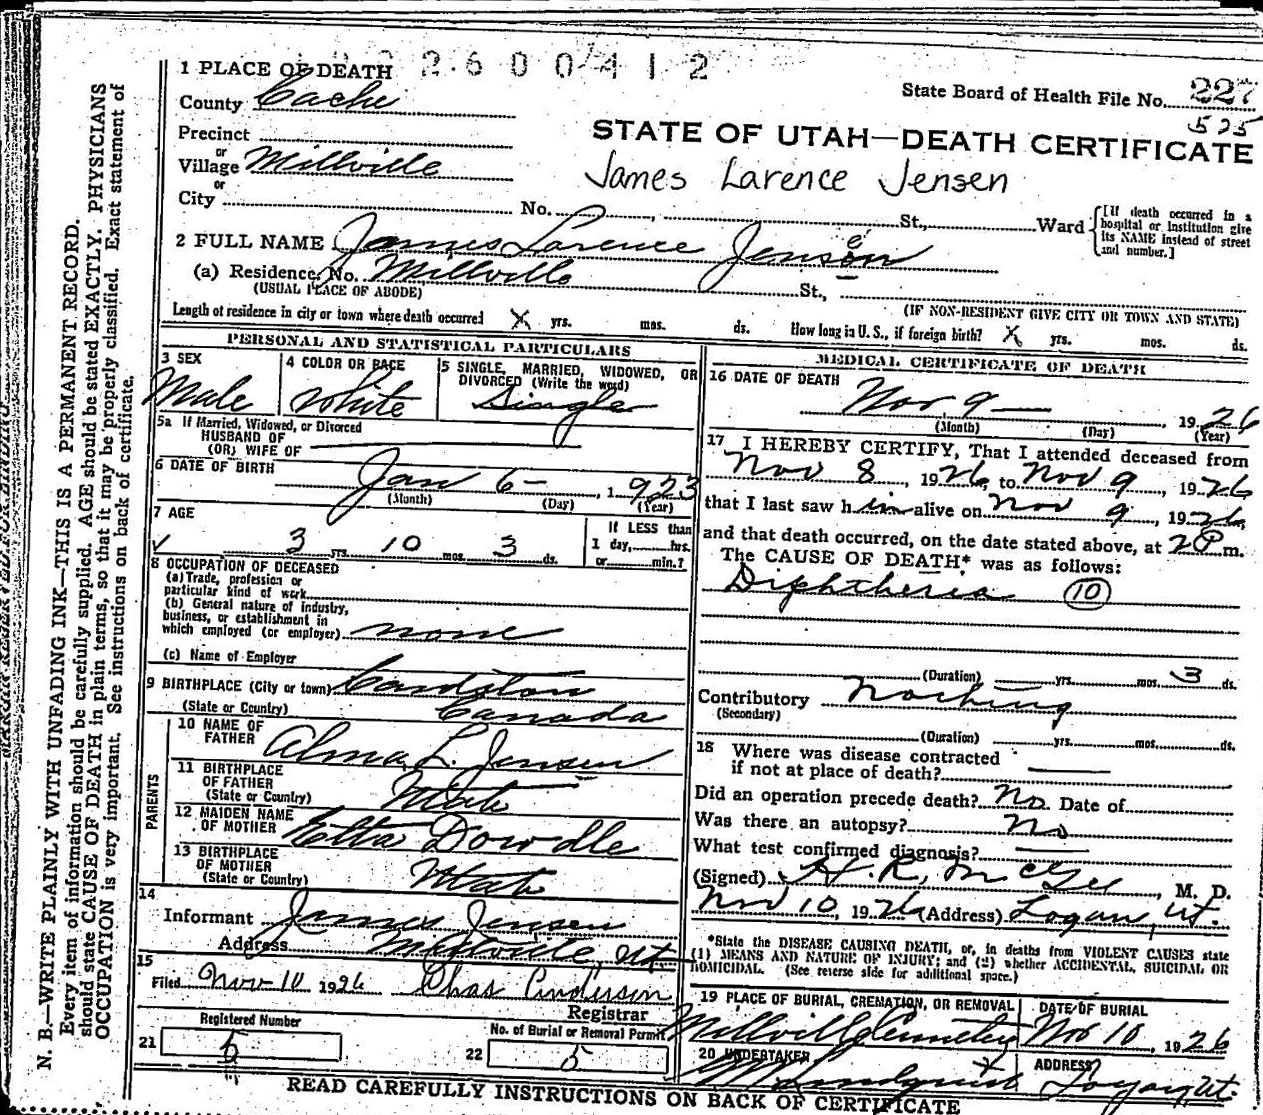 2600412
1 PLACE OF DEATH
State Board of Health File No. 227
525
County Cache
STATE OF UTAH—DEATH CERTIFICATE
Precinct
or
Village Millville
James Larence Jensen
or
City No. St., Ward
[If death occurred in a
hospital or institution give
its NAME instead of street
and number.]
2 FULL NAME James Larence Jensen
(a) Residence, No. Millville St.,
(USUAL PLACE OF ABODE)
(IF NON-RESIDENT GIVE CITY OR TOWN AND STATE)
Length of residence in city or town where death occurred X yrs. mos. ds. How long in U. S., if foreign birth? X yrs. mos. ds.
PERSONAL AND STATISTICAL PARTICULARS
3 SEX
Male
4 COLOR OR RACE
White
5 SINGLE, MARRIED, WIDOWED, OR
DIVORCED (Write the word)
Single
5a If Married, Widowed, or Divorced
HUSBAND OF
(OR) WIFE OF
6 DATE OF BIRTH
Jan 6- , 1923
(Month) (Day) (Year)
7 AGE
3 yrs. 10 mos. 3 ds.
If LESS than
1 day, hrs.
or min.?
8 OCCUPATION OF DECEASED
(a) Trade, profession or
particular kind of work
(b) General nature of industry,
business, or establishment in
which employed (or employer) none
(c) Name of Employer
9 BIRTHPLACE (City or town) Cardston
(State or Country) Canada
PARENTS
10 NAME OF
FATHER Alma L. Jensen
11 BIRTHPLACE
OF FATHER
(State or Country) Utah
12 MAIDEN NAME
OF MOTHER Etta Dowdle
13 BIRTHPLACE
OF MOTHER
(State or Country) Utah
14
Informant James Jensen
Address Millville, Ut
15
Filed Nov 10 1926 Chas Anderson
Registrar
21 Registered Number
5
22 No. of Burial or Removal Permit
5
MEDICAL CERTIFICATE OF DEATH
16 DATE OF DEATH
Nov 9 — , 1926
(Month) (Day) (Year)
17 I HEREBY CERTIFY, That I attended deceased from
Nov 8, 1926, to Nov 9, 1926
that I last saw him alive on Nov 9, 1926,
and that death occurred, on the date stated above, at 2P m.
The CAUSE OF DEATH* was as follows:
Diphtheria 10
(Duration) yrs. mos. 3 ds.
Contributory Nothing
(Secondary)
(Duration) yrs. mos. ds.
18 Where was disease contracted
if not at place of death?
Did an operation precede death? No Date of
Was there an autopsy? No
What test confirmed diagnosis?
(Signed) H. R. McGee, M. D.
Nov 10, 1926 (Address) Logan, Ut.
*State the DISEASE CAUSING DEATH, or, in deaths from VIOLENT CAUSES state
(1) MEANS AND NATURE OF INJURY; and (2) whether ACCIDENTAL, SUICIDAL OR
HOMICIDAL. (See reverse side for additional space.)
19 PLACE OF BURIAL, CREMATION, OR REMOVAL
Millville Cemetery
DATE OF BURIAL
Nov 10, 1926
20 UNDERTAKER
Lindquist
ADDRESS
Logan Ut.
READ CAREFULLY INSTRUCTIONS ON BACK OF CERTIFICATE
MARGIN RESERVED FOR BINDING
N. B.—WRITE PLAINLY WITH UNFADING INK—THIS IS A PERMANENT RECORD.
Every item of information should be carefully supplied. AGE should be stated EXACTLY. PHYSICIANS
should state CAUSE OF DEATH in plain terms, so that it may be properly classified. Exact statement of
OCCUPATION is very important. See instructions on back of certificate.